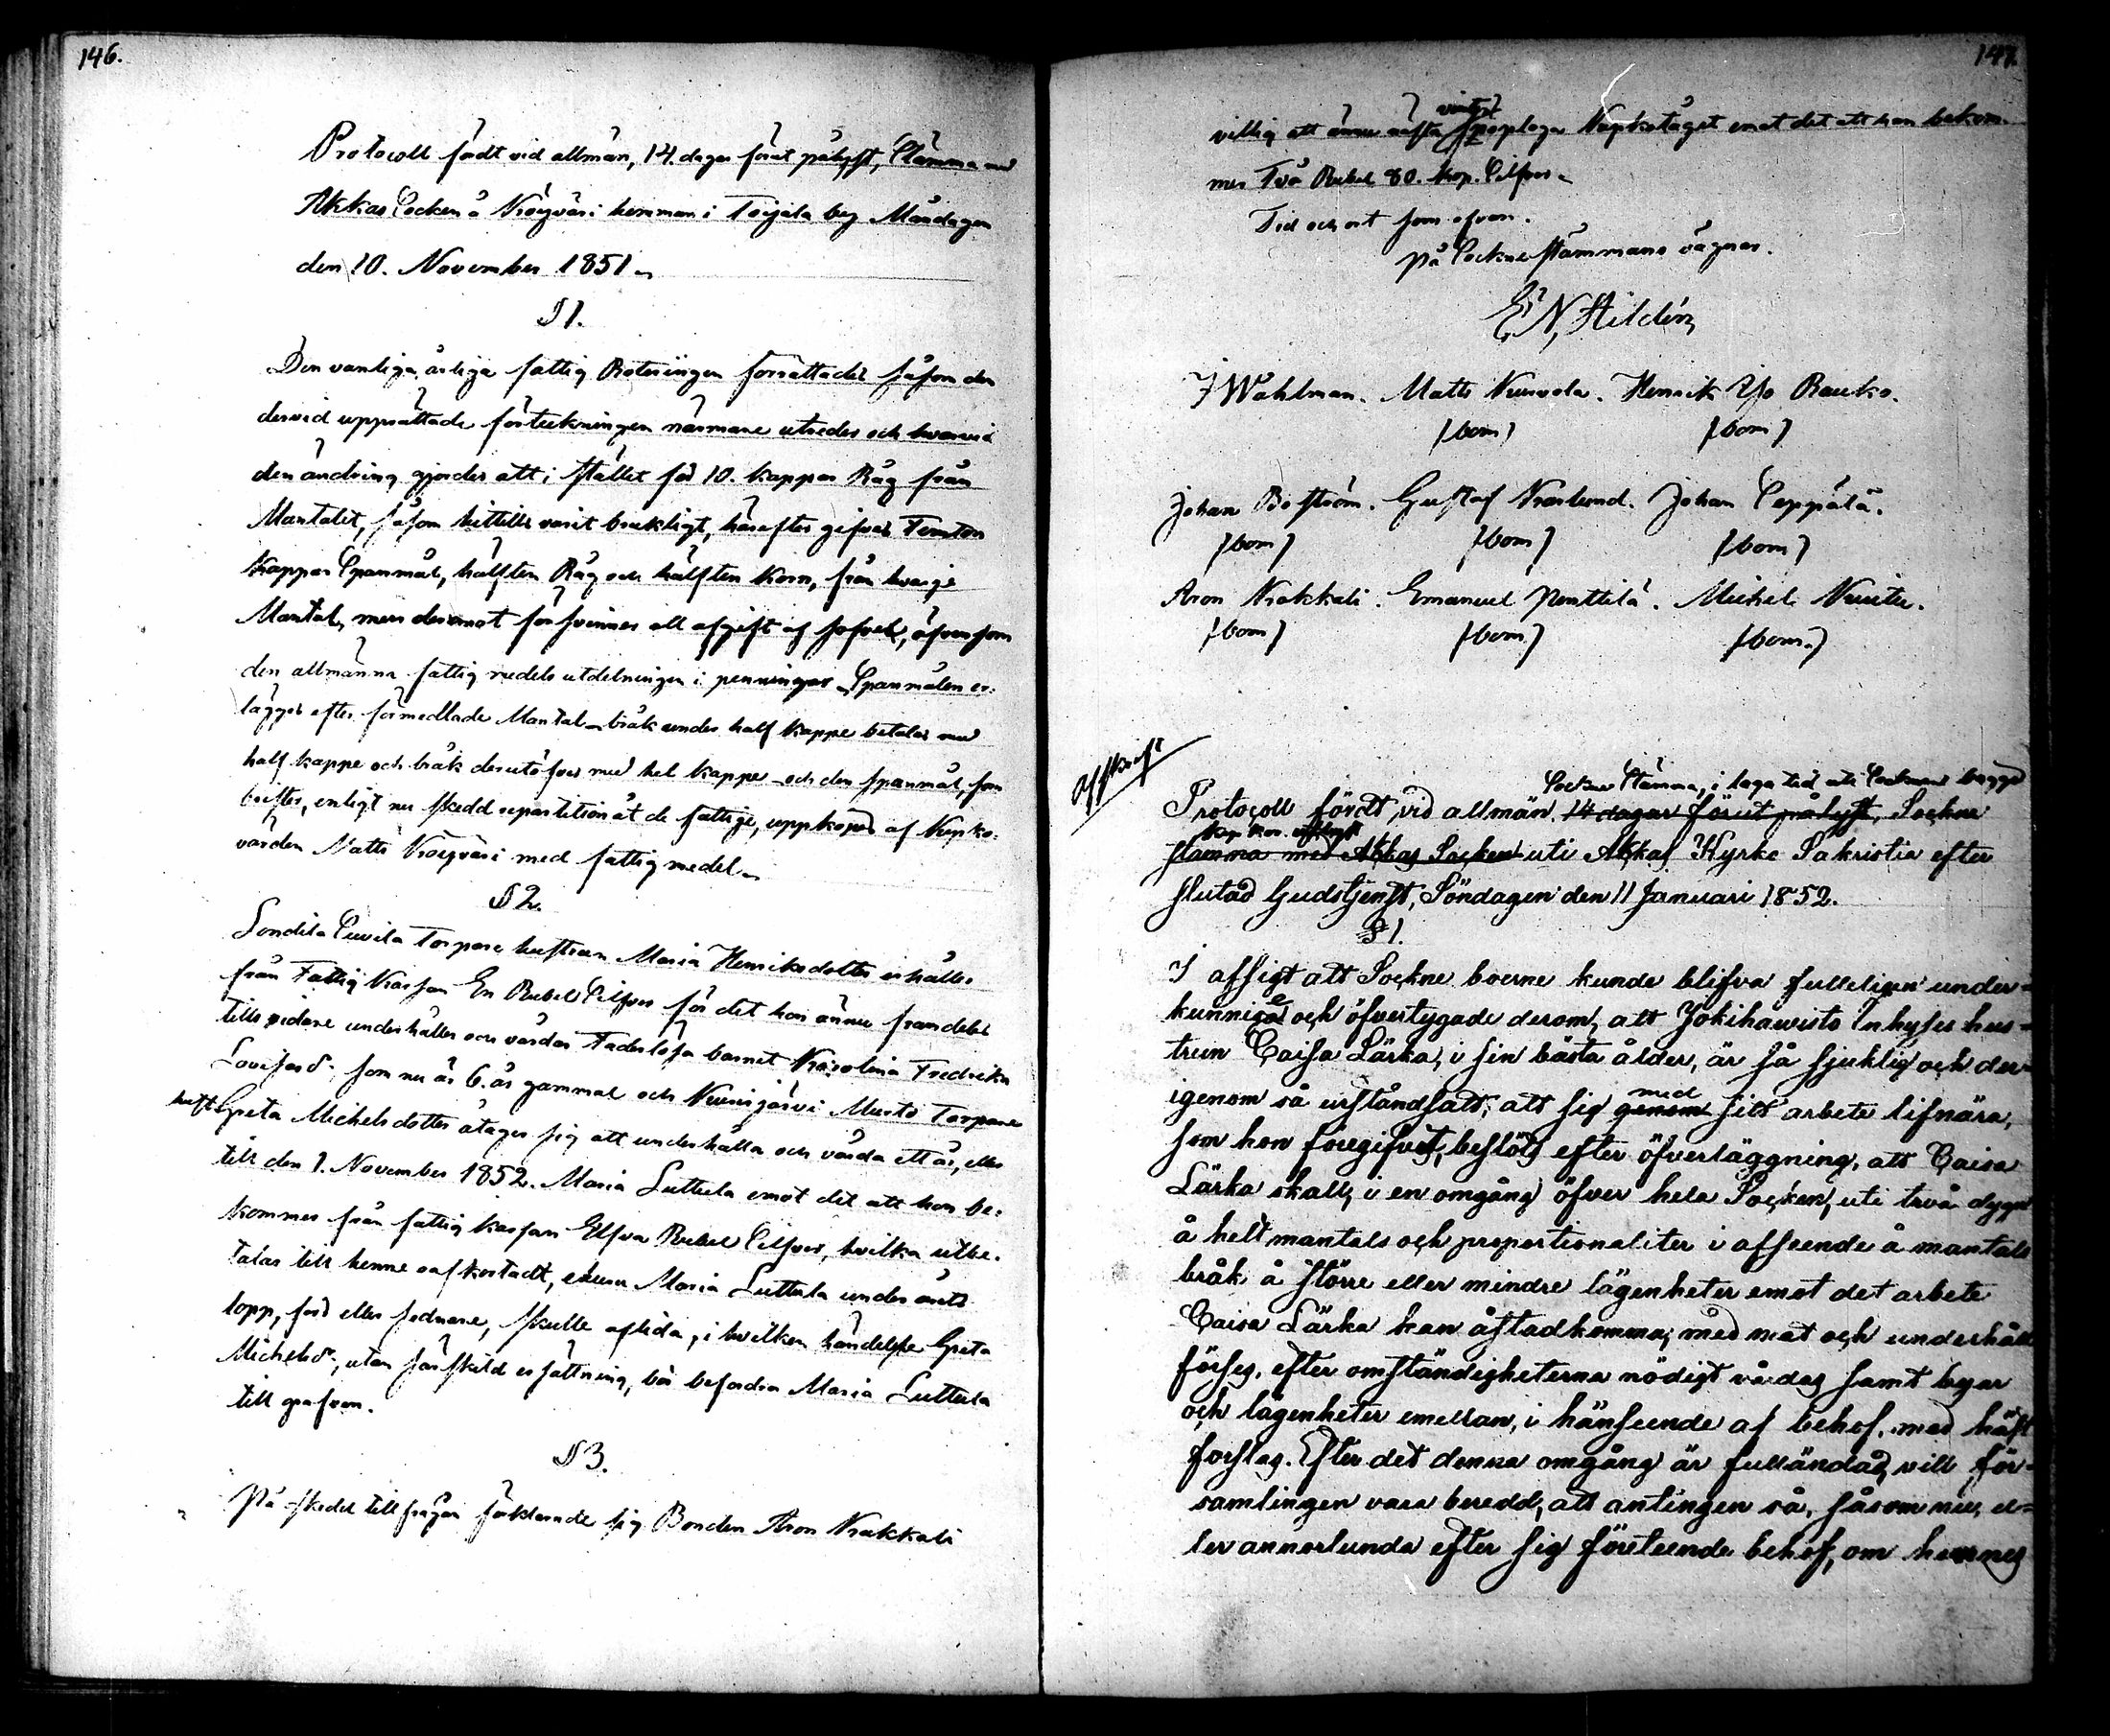 146.
Protocoll fördt vid allmän, 14. dagar förut pålyst, Stämma med
Akkas Socken å Kröyväri hemman i Toijala by Måndagen
den 10. November 1851.
§ 1.
Den vanliga årliga fattig Roteringen förrättades såsom den
dervid upprättade förteckningen närmare utreder och hvarvid
den ändring gjordes att i stället för 10. kappar Råg från
Mantalet, såsom hittills varit brukligt, härefter gifves Femton
kappar Spanmål, hälften Råg och hälften Korn, från hvarje
Mantal, men deremot försvinner all afgift af sofvel, äfvensom
den allmänna fattig medels utdelningen i penningar. Spanmålen er-
lägges efter förmedlade Mantal – bråk under half kappe betalas med
half kappe och bråk derutöfver med hel kappe – och den spanmål, som
brister, enligt nu skedd repartition åt de fattige, uppköpes af Kyrko-
värden Matts Kröyväri med fattigmedel.
§ 2.
Sondila Torpare hustrun Maria Henriksdotter erhåller
från Fattig Kassan En Rubel Silfver för det hon ännu framdeles
tills vidare underhåller och vårdar Faderlösa barnet Karolina Fredrika
Lovisasdr. som nu är 6. år gammal och Kurisjärvi Musto Torpare
hust. Greta Michelsdotter åtager sig att underhålla och vårda ett år, eller
till den 1. November 1852. Maria Luttula emot det att hon be-
kommer från fattig kassan Elfva Rubel Silfver, hvilka utbe-
talas till henne oafkortadt, ehuru Maria Luttula under årets
lopp, förr eller sednare, skulle aflida, i hvilken händelse Greta
Michelsdr., utan särskild ersättning, bör befordra Maria Luttula
till grafven.
§ 3.
På skedd tillfrågan förklarade sig Bonden Aron Krakkali
147.
villig att ännu nästa vinter snöploga Kyrkotåget emot det att han bekom-
mer Två Rubel 80. Kop. Silfver.
Tid och ort som ofvan.
På Sockne stämmans vägnar.
E. N. Hildén
J Wahlman. Matts Kurvola. Henrik Yjo Rauko.
(bom) (bom)
Johan Boström. Gustaf Norlund. Johan Seppälä.
(bom) (bom) (bom)
Aron Krakkali. Emanuel Penttilä. Michel Kuitu.
(bom) (bom) (bom.)
Afskrift
Sockne Stämma, i laga tid uti Socknens begge
Protocoll fördt vid allmän 14 dagar förut pålyst, Sockne
stämma med Akkas Socken uti Akkas Kyrke Sakristia efter
slutad Gudstjenst, Söndagen den 11 Januari 1852.
§ 1.
I afsigt att Sockne boerne kunde blifva fulleligen under-
kunnige och öfvertygade derom, att Jokihawisto Inhyses hus-
trun Caisa Lärka, i sin bästa ålder, är så sjuklig och der-
igenom så urståndsatt, att sig genom med sitt arbete lifnära,
som hon föregifvit, beslöts efter öfverläggning, att Caisa
Lärka skall, i en omgång öfver hela Socken, uti två dygn
å helt mantals och proportionaliter i afseende å mantals
bråk å större eller mindre lägenheter emot det arbete
Caisa Lärka kan åstadkomma, med mat och underhåll
förses, efter omständigheterna nödigt vårdas samt byar
och lägenheter emellan, i hänseende af behof, med häst
forslas. Efter det denna omgång är fulländad, vill för-
samlingen vara beredd, att antingen så, såsom nu, el-
ler annorlunda efter sig företeende behof, om hennes